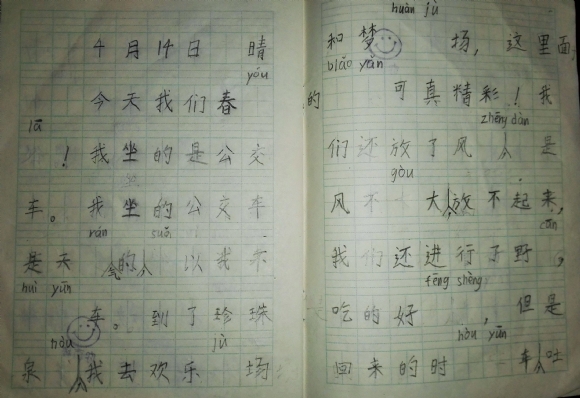 4月14日 晴
yóu
今天我们春
lā
！我坐的是公交
车。我坐的公交车
rán suǒ
是天的 以我不
huì yūn
车。到了珍珠
hòu jù
泉 我去欢乐 场
huàn jù
和梦 场，这里面
biǎo yǎn
的 可真精彩！我
zhēng dàn
们还放了风 是
gòu
风不 大放不起来，
cān
我们还进行了野，
fēng shèng
吃的好 ，但是
hòu yūn
回来的时 车吐